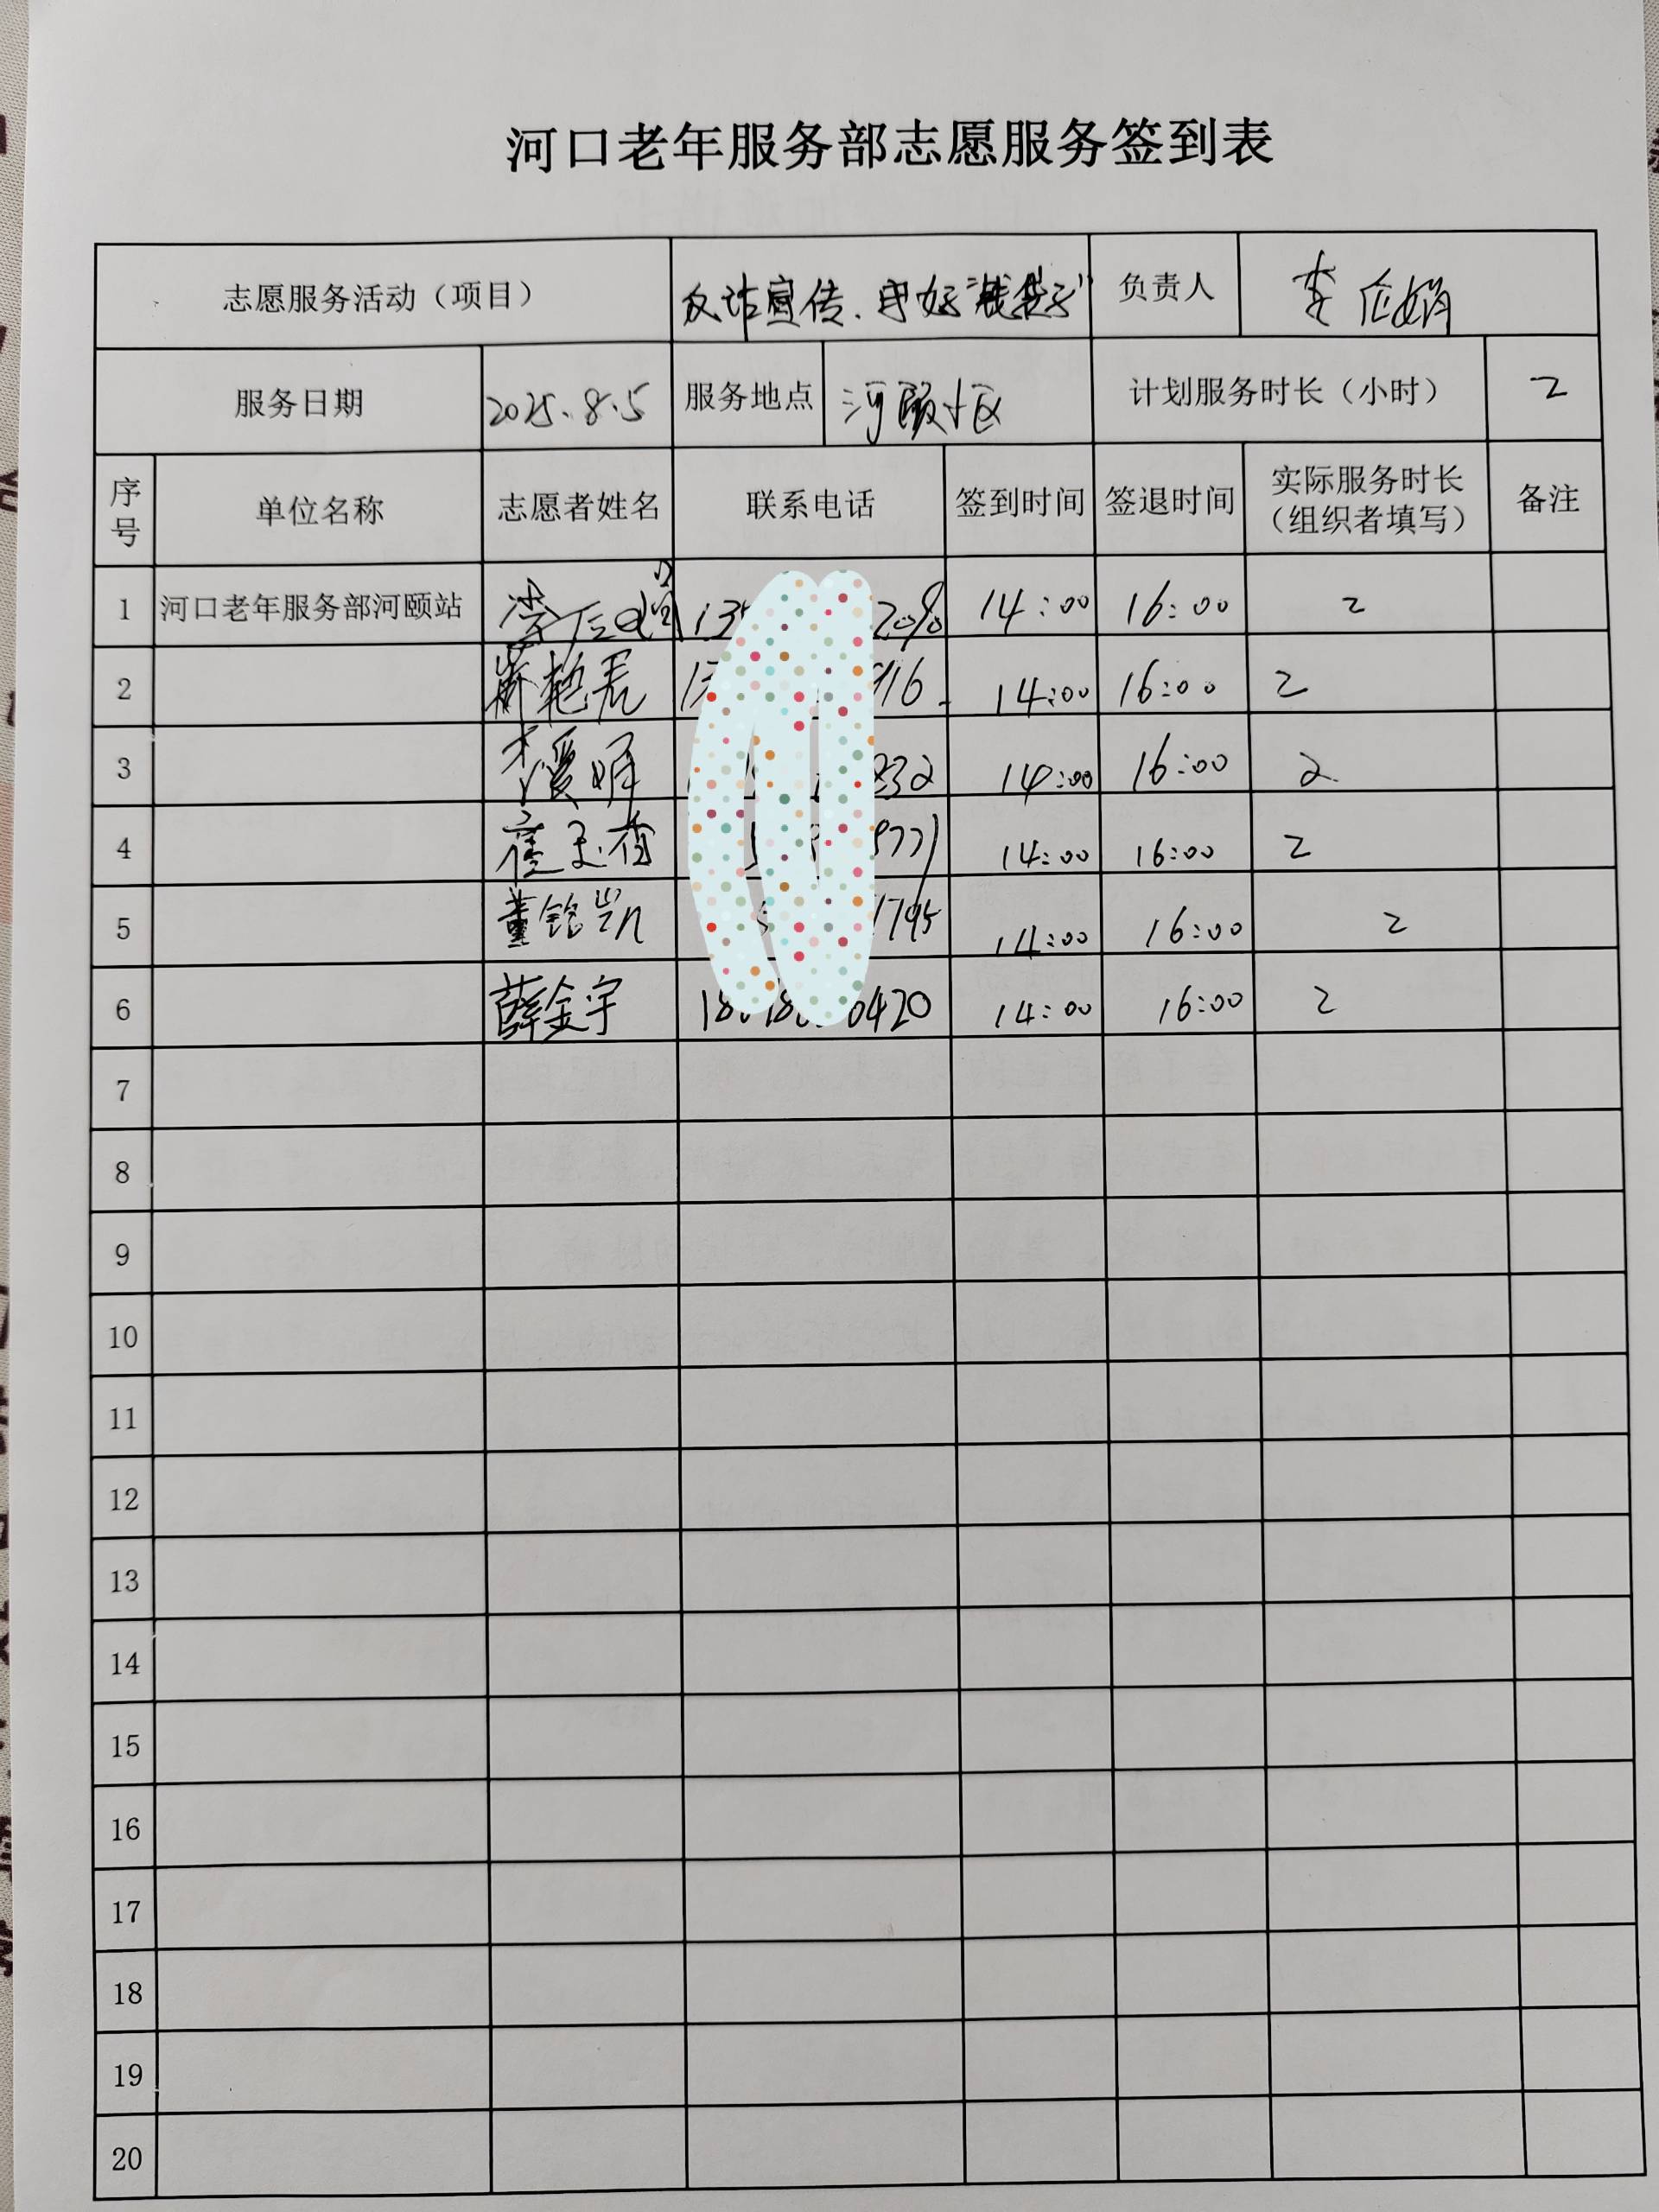 河口老年服务部志愿服务签到表
志愿服务活动（项目） 反诈宣传、守好"钱袋子" 负责人 李
服务日期 2025.8.5 服务地点 河颐小区 计划服务时长（小时） 2
序号 单位名称 志愿者姓名 联系电话 签到时间 签退时间 实际服务时长（组织者填写） 备注
1 河口老年服务部河颐站 李 14:00 16:00 2
2 916 14:00 16:00 2
3 832 14:00 16:00 2
4 崔玉 14:00 16:00 2
5 董铭凯 1795 14:00 16:00 2
6 薛金宇 0420 14:00 16:00 2
7
8
9
10
11
12
13
14
15
16
17
18
19
20